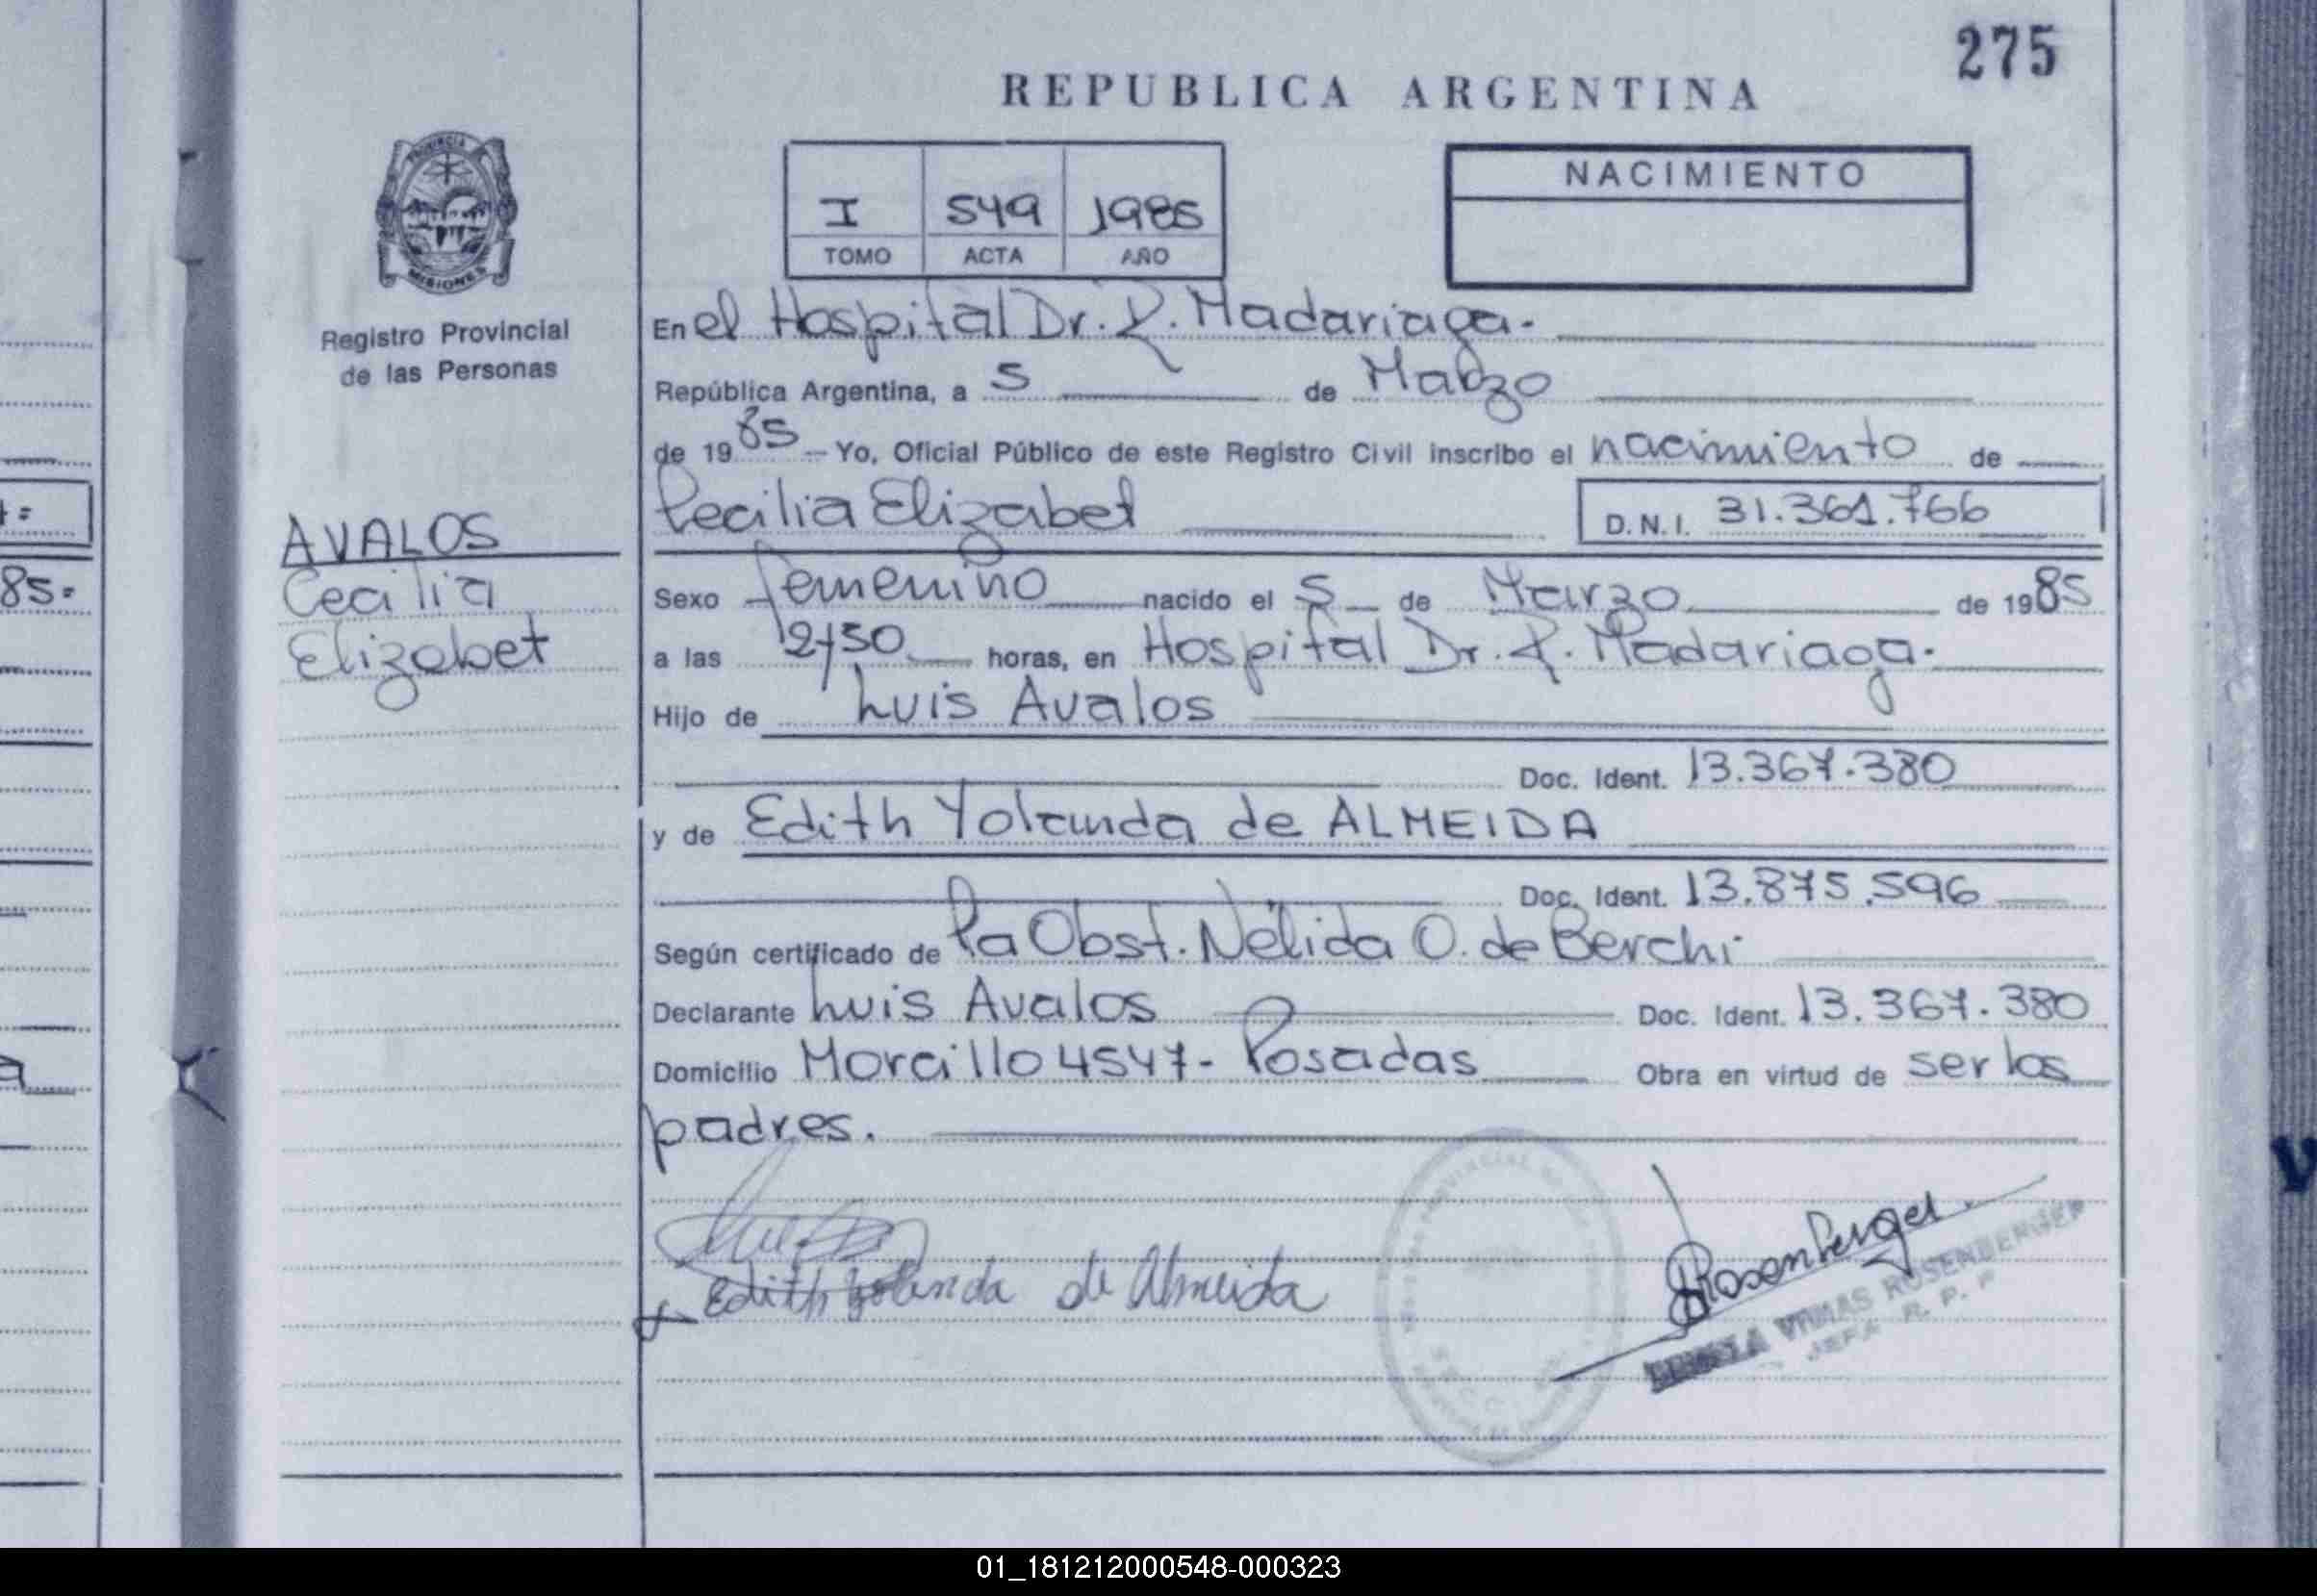 275
REPUBLICA ARGENTINA
PROVINCIA
MISIONES
Registro Provincial
de las Personas
I 549 1985
TOMO ACTA AÑO
NACIMIENTO
En el Hospital Dr. R. Madariaga.
República Argentina, a 5 de Marzo
de 1985 - Yo, Oficial Público de este Registro Civil inscribo el nacimiento de
Cecilia Elizabet D.N.I. 31.361.766
AVALOS
Cecilia
Elizabet
85=
Sexo femenino nacido el 5 de Marzo de 1985
a las 12,50 horas, en Hospital Dr. R. Madariaga.
Hijo de Luis Avalos
Doc. Ident. 13.367.380
y de Edith Yolanda de ALMEIDA
Doc. Ident. 13.875.596
Según certificado de la Obst. Nélida O. de Berchi
Declarante Luis Avalos Doc. Ident. 13.367.380
Domicilio Morcillo 4547 - Posadas Obra en virtud de ser los
padres.
Edith Yolanda de Almeida
Rosenberger
VIÑAS ROSENBERGER
JEFA R. P. P.
01_181212000548-000323